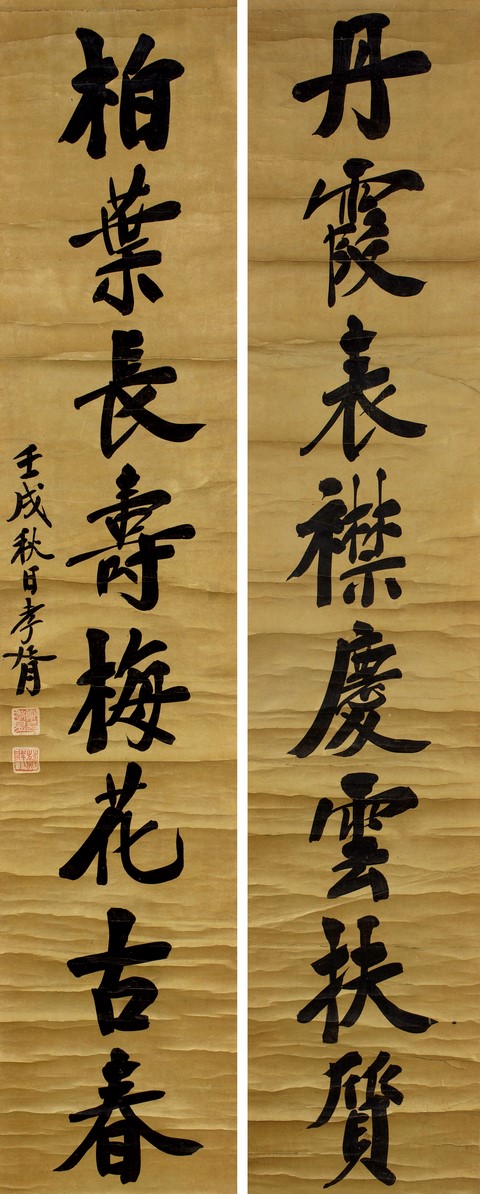 丹霞表襟慶雲扶質
柏葉長壽梅花古春
壬戌秋日孝胥